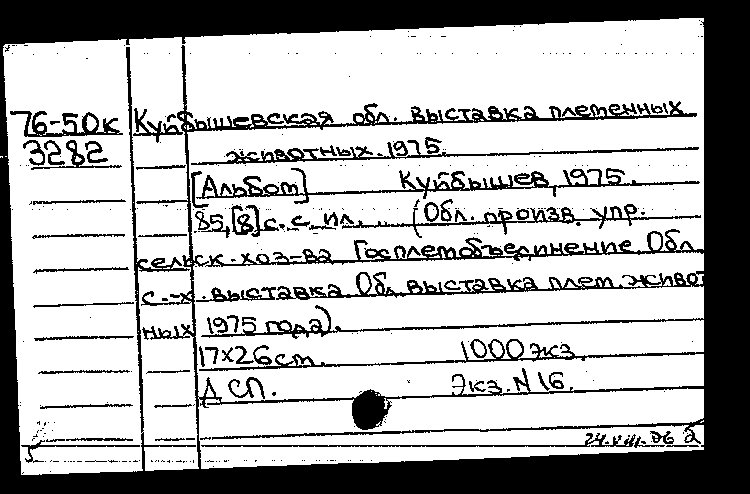 76-50к Куйбышевская обл. выставка племенных
3282 животных. 1975.
[Альбом] Куйбышев, 1975.
85,[8] с. с ил. (Обл. произв. упр.
сельск. хоз-ва Госплемобъединение. Обл.
с.-х. выставка. Обл. выставка плем. живот
ных 1975 года).
17×26 см. 1000 экз.
ДСП. Экз. N 16.
24.VIII.76